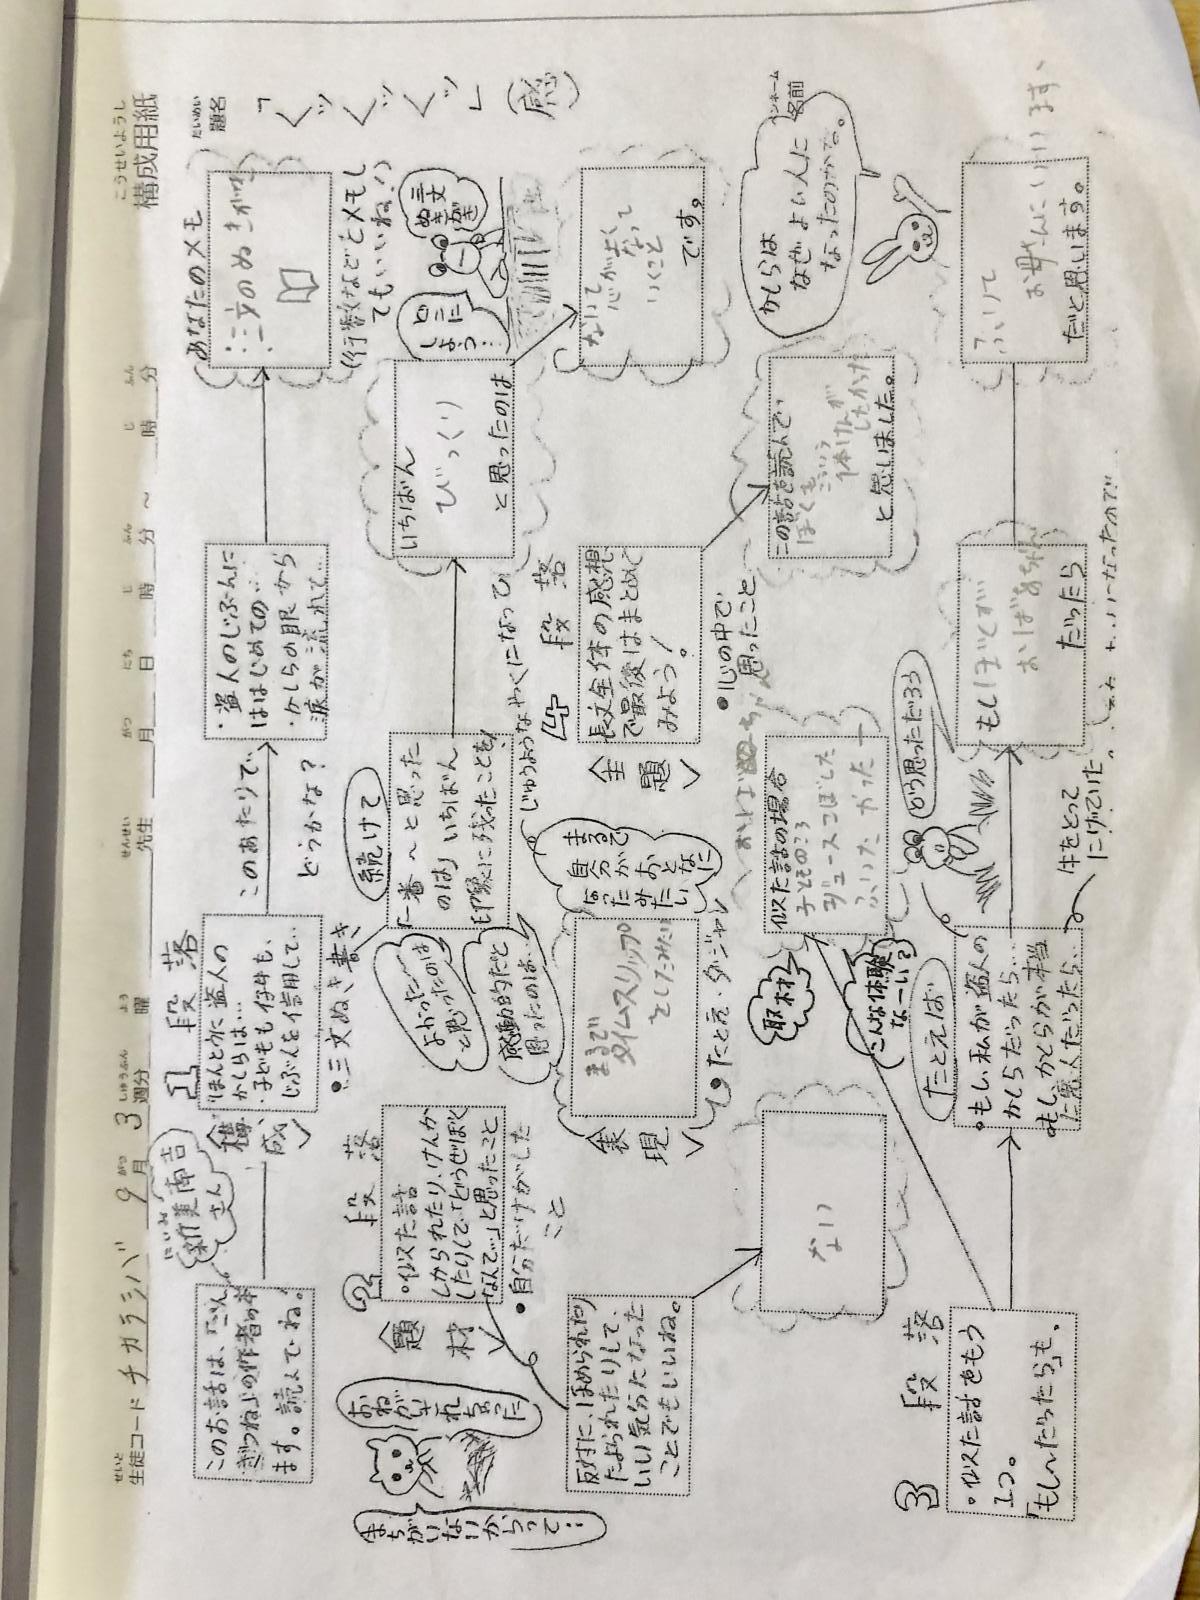 こうせいようし
構成用紙
生徒コード チカラシバ 9月 3 週分 曜 先生 月 日 時 分 ～ 時 分
せいと がつ しゅうぶん よう せんせい がつ にち じ ふん じ ふん
たいめい
題名
「くッくッくッ」
感
ペンネーム
名前
このお話は、「ごん
ぎつね」の作者の本
ます。読んでね。
にいみ
新美南吉
さん
1段落
〈構成〉
・ほんとうに盗人の
かしらは…
・子どもも仔牛も、
じぶんを信用して…
このあたりで、
どうかな？
・盗人のじぶんに
ははじめての…
・かしらの眼から
涙が流れて…
あなたのメモ
三文のぬきがき
(行数などとメモし
てもいいね！)
・三文ぬき書き
三文
ぬき
がき
どこに
しよう…
2段落
〈題材〉
・似た話
しかられたり、けんか
したりして、「どうせぼく
なんて…」と思ったこと
・自分だけがした
こと
まちがいないからって…
おねがい
されちゃった
反対に、ほめられたり
たよられたりして、
いい気分になった
ことでもいいね。
ない
続けて
「一番～と思った
のは」いちばん
印象に残ったことを
いちばん
びっくり
と思ったのは
ないて
心がよく
なって
いくこと
です。
よかった
と思ったのは
感動的だと
思ったのは…
じゅうようなやくになって
〈表現〉
まるで
タイムスリップ
としたみたい
・たとえ・ダジャレ
まるで
自分が
おとなに
なったみたい
4段落
〈主題〉
長文全体の感想
で最後はまとめて
みよう！
・心の中で
思ったこと
この話を読んで
ぼくも
こういう
体けんが
したかった
と思いました。
かしらは
なぜよい人に
なったのかな。
3段落
・似た話をもう
1つ。
「もし～だったら」も。
取材
こんな体験
なーい？
似た話の場合
子どものころ
ジュースこぼした
ふいた
たとえば
・もし、私が盗人の
かしらだったら…
・もし、かしらが本当
に悪人だったら…
どう思っただろう
牛をとって
にげていた
もしぼくが
おばあちゃん
だったら
ふいて
お母さんにいい
だと思います。